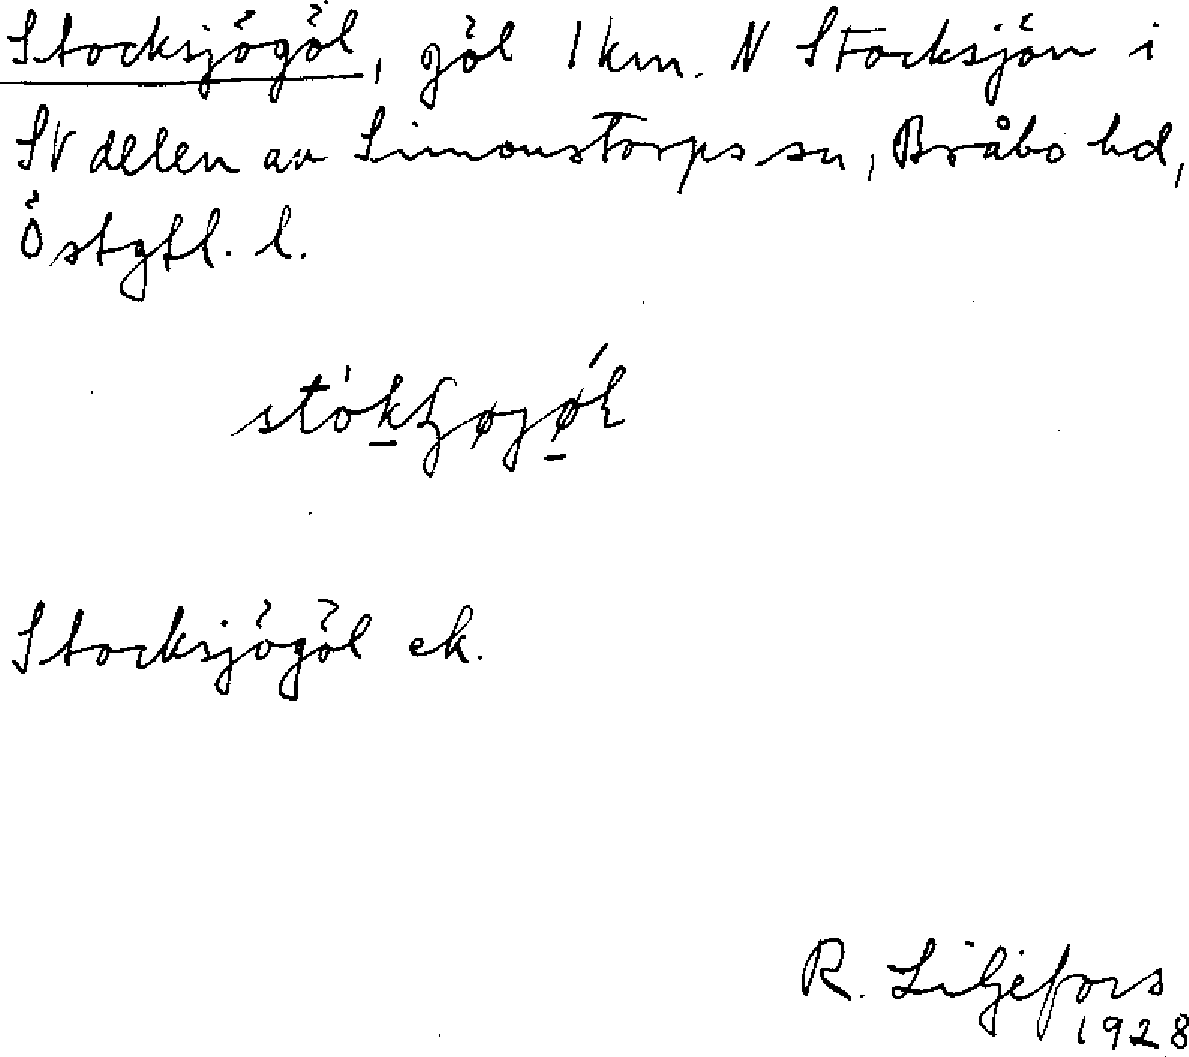 Stocksjögöl, göl 1 km. N Stocksjön i
SV delen av Simonstorps sn, Bråbo hd,
Östgtl. l.
Stocksjögöl ek.
R. Liljefors
1928